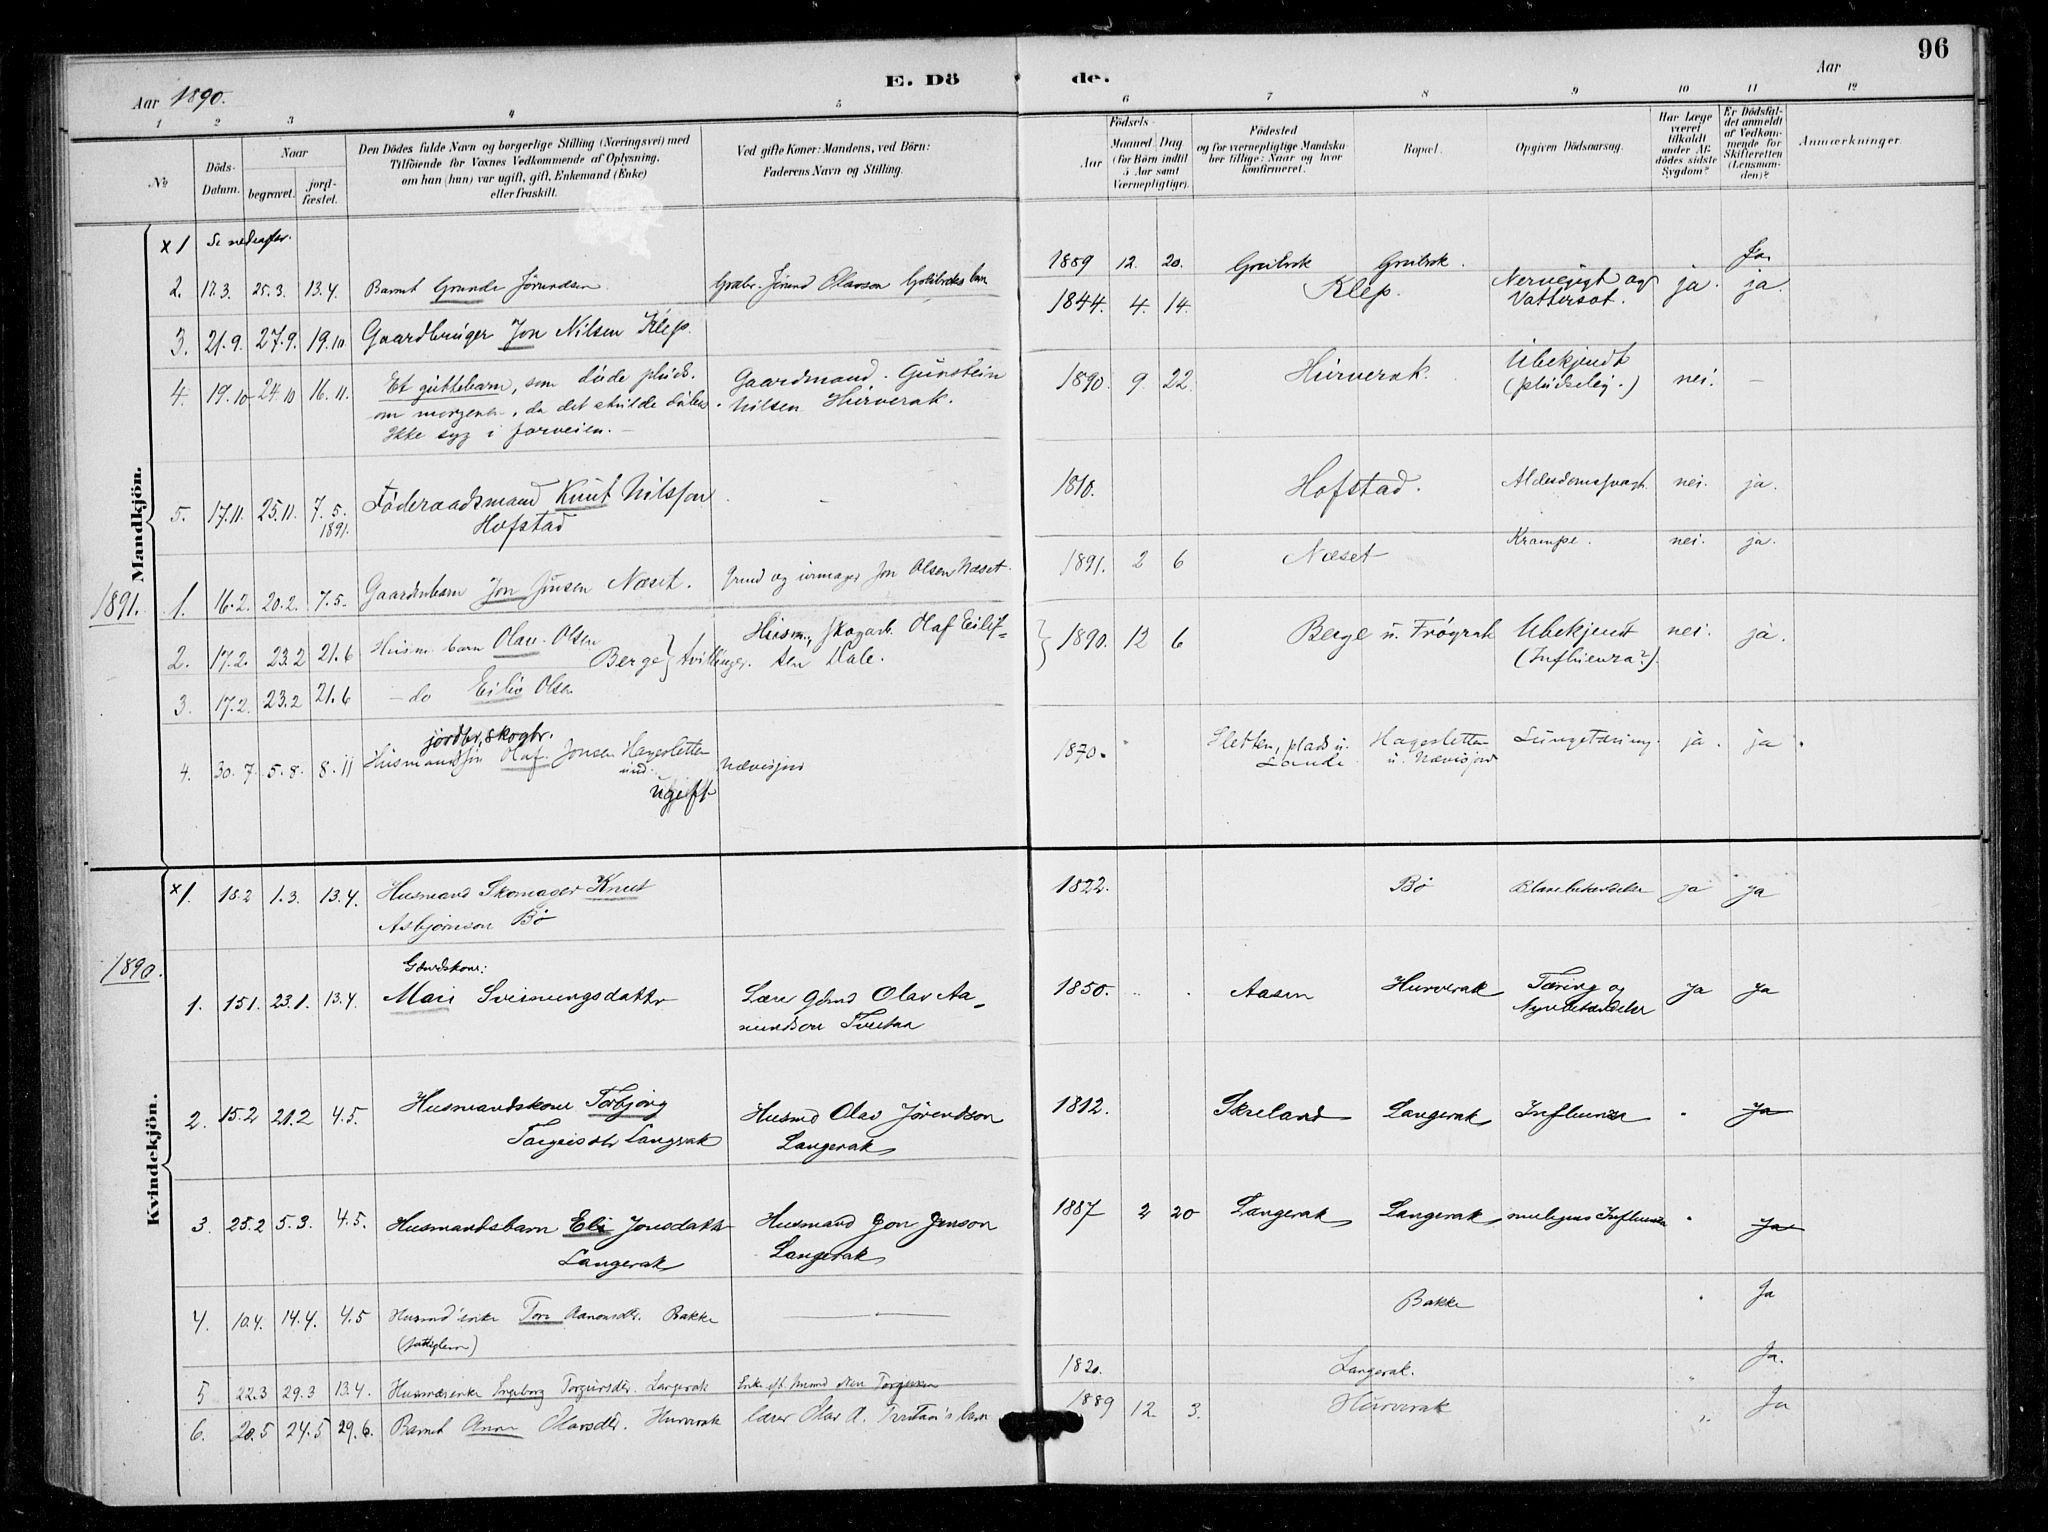 96
E. Dö de.
Aar 1890.
Aar
1 2 3 4 5 6 7 8 9 10 11 12
No.
Döds-Datum.
Naar
begravet.
jord-fæstet.
Den Dödes fulde Navn og borgerlige Stilling (Næringsvei) med
Tilföiende for Voxnes Vedkommende af Oplysning,
om han (hun) var ugift, gift, Enkemand (Enke)
eller fraskilt.
Ved gifte Koner: Mandens, ved Börn:
Faderens Navn og Stilling.
Födsels-
Aar
Maaned Dag
(for Børn indtil
5 Aar samt
Værnepligtige).
Födested
og for værnepligtige Mandska-
ber tillige: Naar og hvor
konfirmeret.
Bopæl.
Opgiven Dödsaarsag.
Har Læge
været
tilkaldt
under Af-
dödes sidste
Sygdom?
Er Dödsfal-
det anmeldt
af Vedkom-
mende for
Skifteretten
(Lensman-
den)?
Anmærkninger.
Mandkjön.
x 1 Se nedenfor.
2. 17.3. 25.3. 13.4. Barnet Grunde Jörundsen. Jörund Olavson 1889 12. 20. Greibrok Greibrok. Ja.
3. 21.9. 27.9. 19.10 Gaardbruger Jon Nilsen Klep. 1844. 4. 14. Klep. Nervegigt og Vattersot. ja. ja.
4. 19.10 24.10 16.11. Et guttebarn, som døde pluds. Gaardmand Gunstein 1890. 9. 22. Hurverak. Ubekjendt nei. —
om morgenen, da det skulde døbes. Nilsen Hurverak. (pludselig.)
Ikke syg i forveien. —
5. 17.11. 25.11. 7.5. 1891. Föderaadsmand Knut Nilsson — 1810. Hofstad. Alderdomssvagh. nei. ja.
Hofstad
1891. 1. 16.2. 20.2. 7.5. Gaardmbarn Jon Jonsen Næset. Jon Olsen Næset. 1891. 2 6 Næset Krampe. nei. ja.
2. 17.2. 23.2 21.6 Husm. barn Olav Olsen Berge } tvillinger. Husm., skogarb. Olaf Eilif- } 1890. 12 6 Berge u. Frøyrak Ubekjendt nei. ja.
sen Dale. (Influenza?).
3. 17.2. 23.2 21.6 — do Eiliv Olsen
jordbr, skogbr.
4. 30.7. 5.8. 8.11 Husmandssön Olaf Jonsen Hagesletten 1870. Sletten, plads u. Lande Hagesletten u. Nævisjord Lungetæring. ja. ja.
und. Nævisjord
ugift
x1. 18.2 1.3. 13.4. Husmand Skomager Knut 1822. Bø ja ja
Asbjørnson Bö
Kvindekjön.
1890.
Gaardskone:
1. 15.1. 23.1. 13.4. Mari Sveinungsdatter Lærer Olav Aa- 1850. Aasen Hurverak Tæring og Nyrebetændelse ja ja
mundson Tveitaa
2. 15.2 21.2 4.5. Husmandskone Torbjørg Husmd Olav Jörendson 1812. Skreland Langerak Influenza " Ja
Targeisdtr Langrak Langerak
3. 25.2 5.3. 4.5. Husmandsbarn Eli Jonsdatter Husmand Jon Jonson 1887 2 20 Langerak Langerak muligens Influenza " Ja
Langerak Langerak
4. 10.4. 14.4. 4.5 Husmd enke Tone Aanonsdtr. Bakke — Bakke " Ja
5 22.3 29.3 13.4. Ingeborg Torgeirsdtr. Langerak 1820. Langerak. " Ja.
6. 20.5 24.5 29.6. Barnet Anne Olavsdtr. Hurverak lærer Olav A. Tveitaa's barn 1889 12. 3. Hurverak " Ja